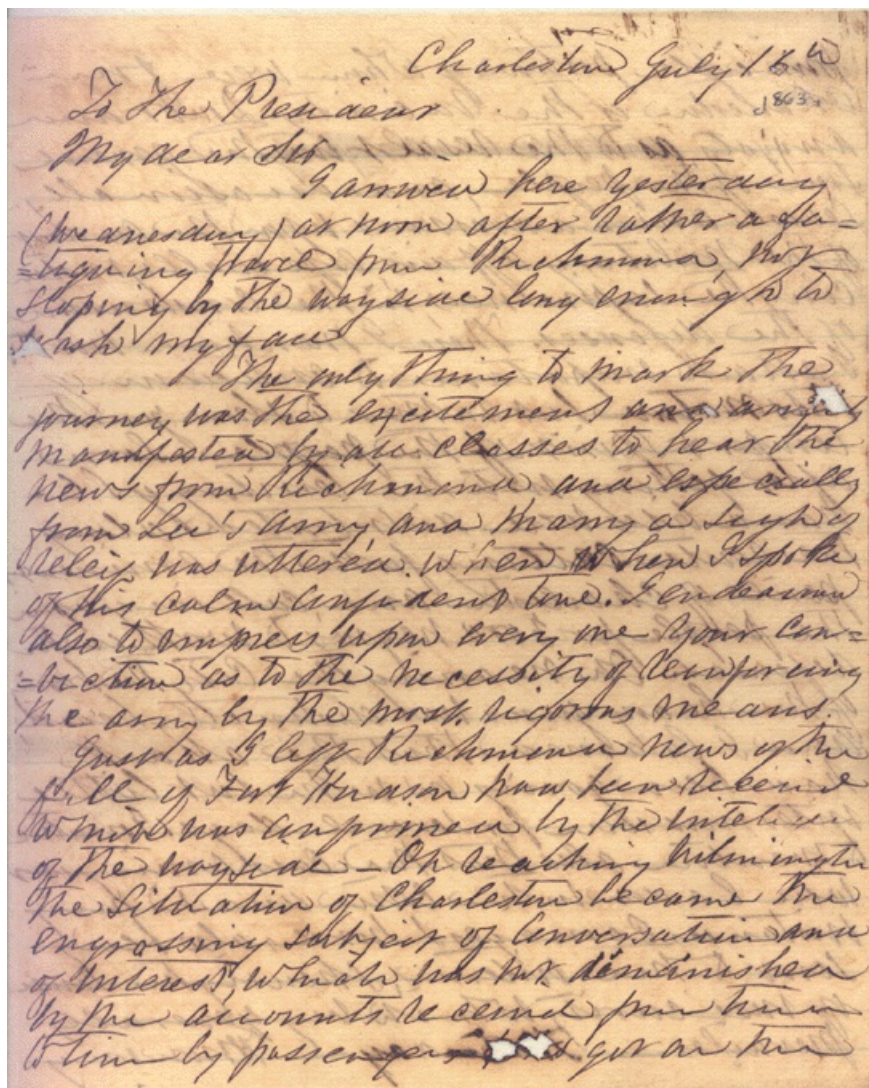 Charleston July 16th
1863
To The President
My dear Sir
I arrived here yesterday
(Wednesday) at noon after rather a fa=
=tiguing travel from Richmond, not
stoping by the wayside long enough to
wash my face
The only thing to mark the
journey was the excitement and anxiety
manifested by all classes to hear the
news from Richmond and especially
from Lee's army and many a sigh of
relief was uttered when when I spoke
of his calm confident tone. I endeavored
also to impress upon every one your con=
=viction as to the necessity of reinforcing
the army by the most rigorous means.
Just as I left Richmond news of the
fall of Fort Hudson had been received
which was confirmed by the
of the wayside – On reaching Wilmington
the situation of Charleston became the
engrossing subject of conversation and
of interest, which was not diminished
by the accounts received from time
to time by passengers got on the